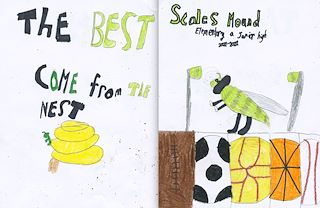 THE BEST
COME from THE
NEST
Scales Mound
Elementary & Junior high